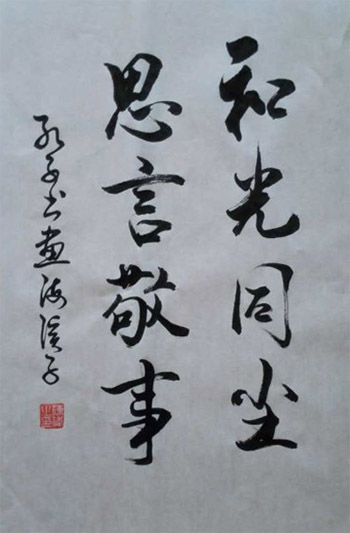 和光同尘
思言敬事
孔子书画海子